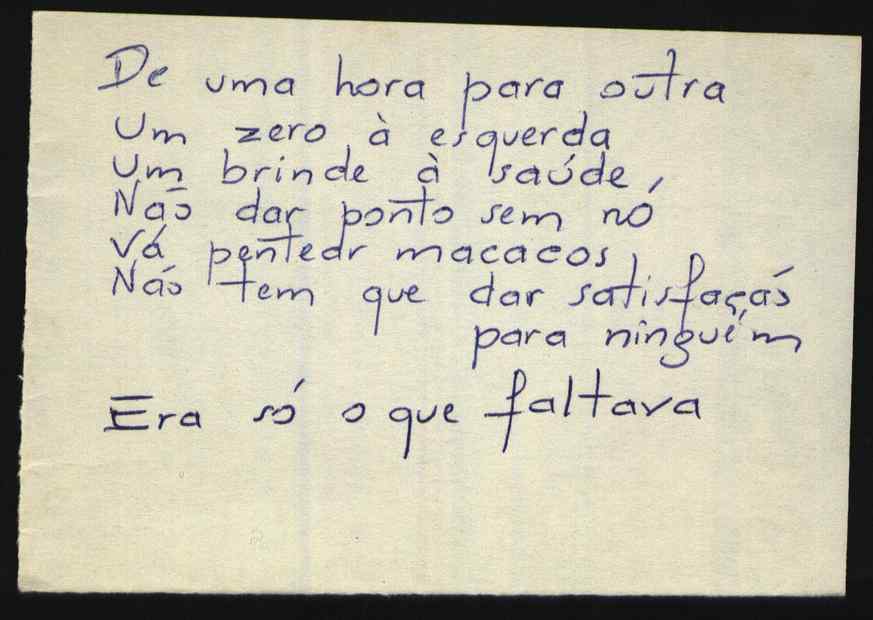 De uma hora para outra
Um zero à esquerda
Um brinde à saúde
Não dar ponto sem nó
Vá pentear macacos
Não tem que dar satisfação
para ninguém
Era só o que faltava